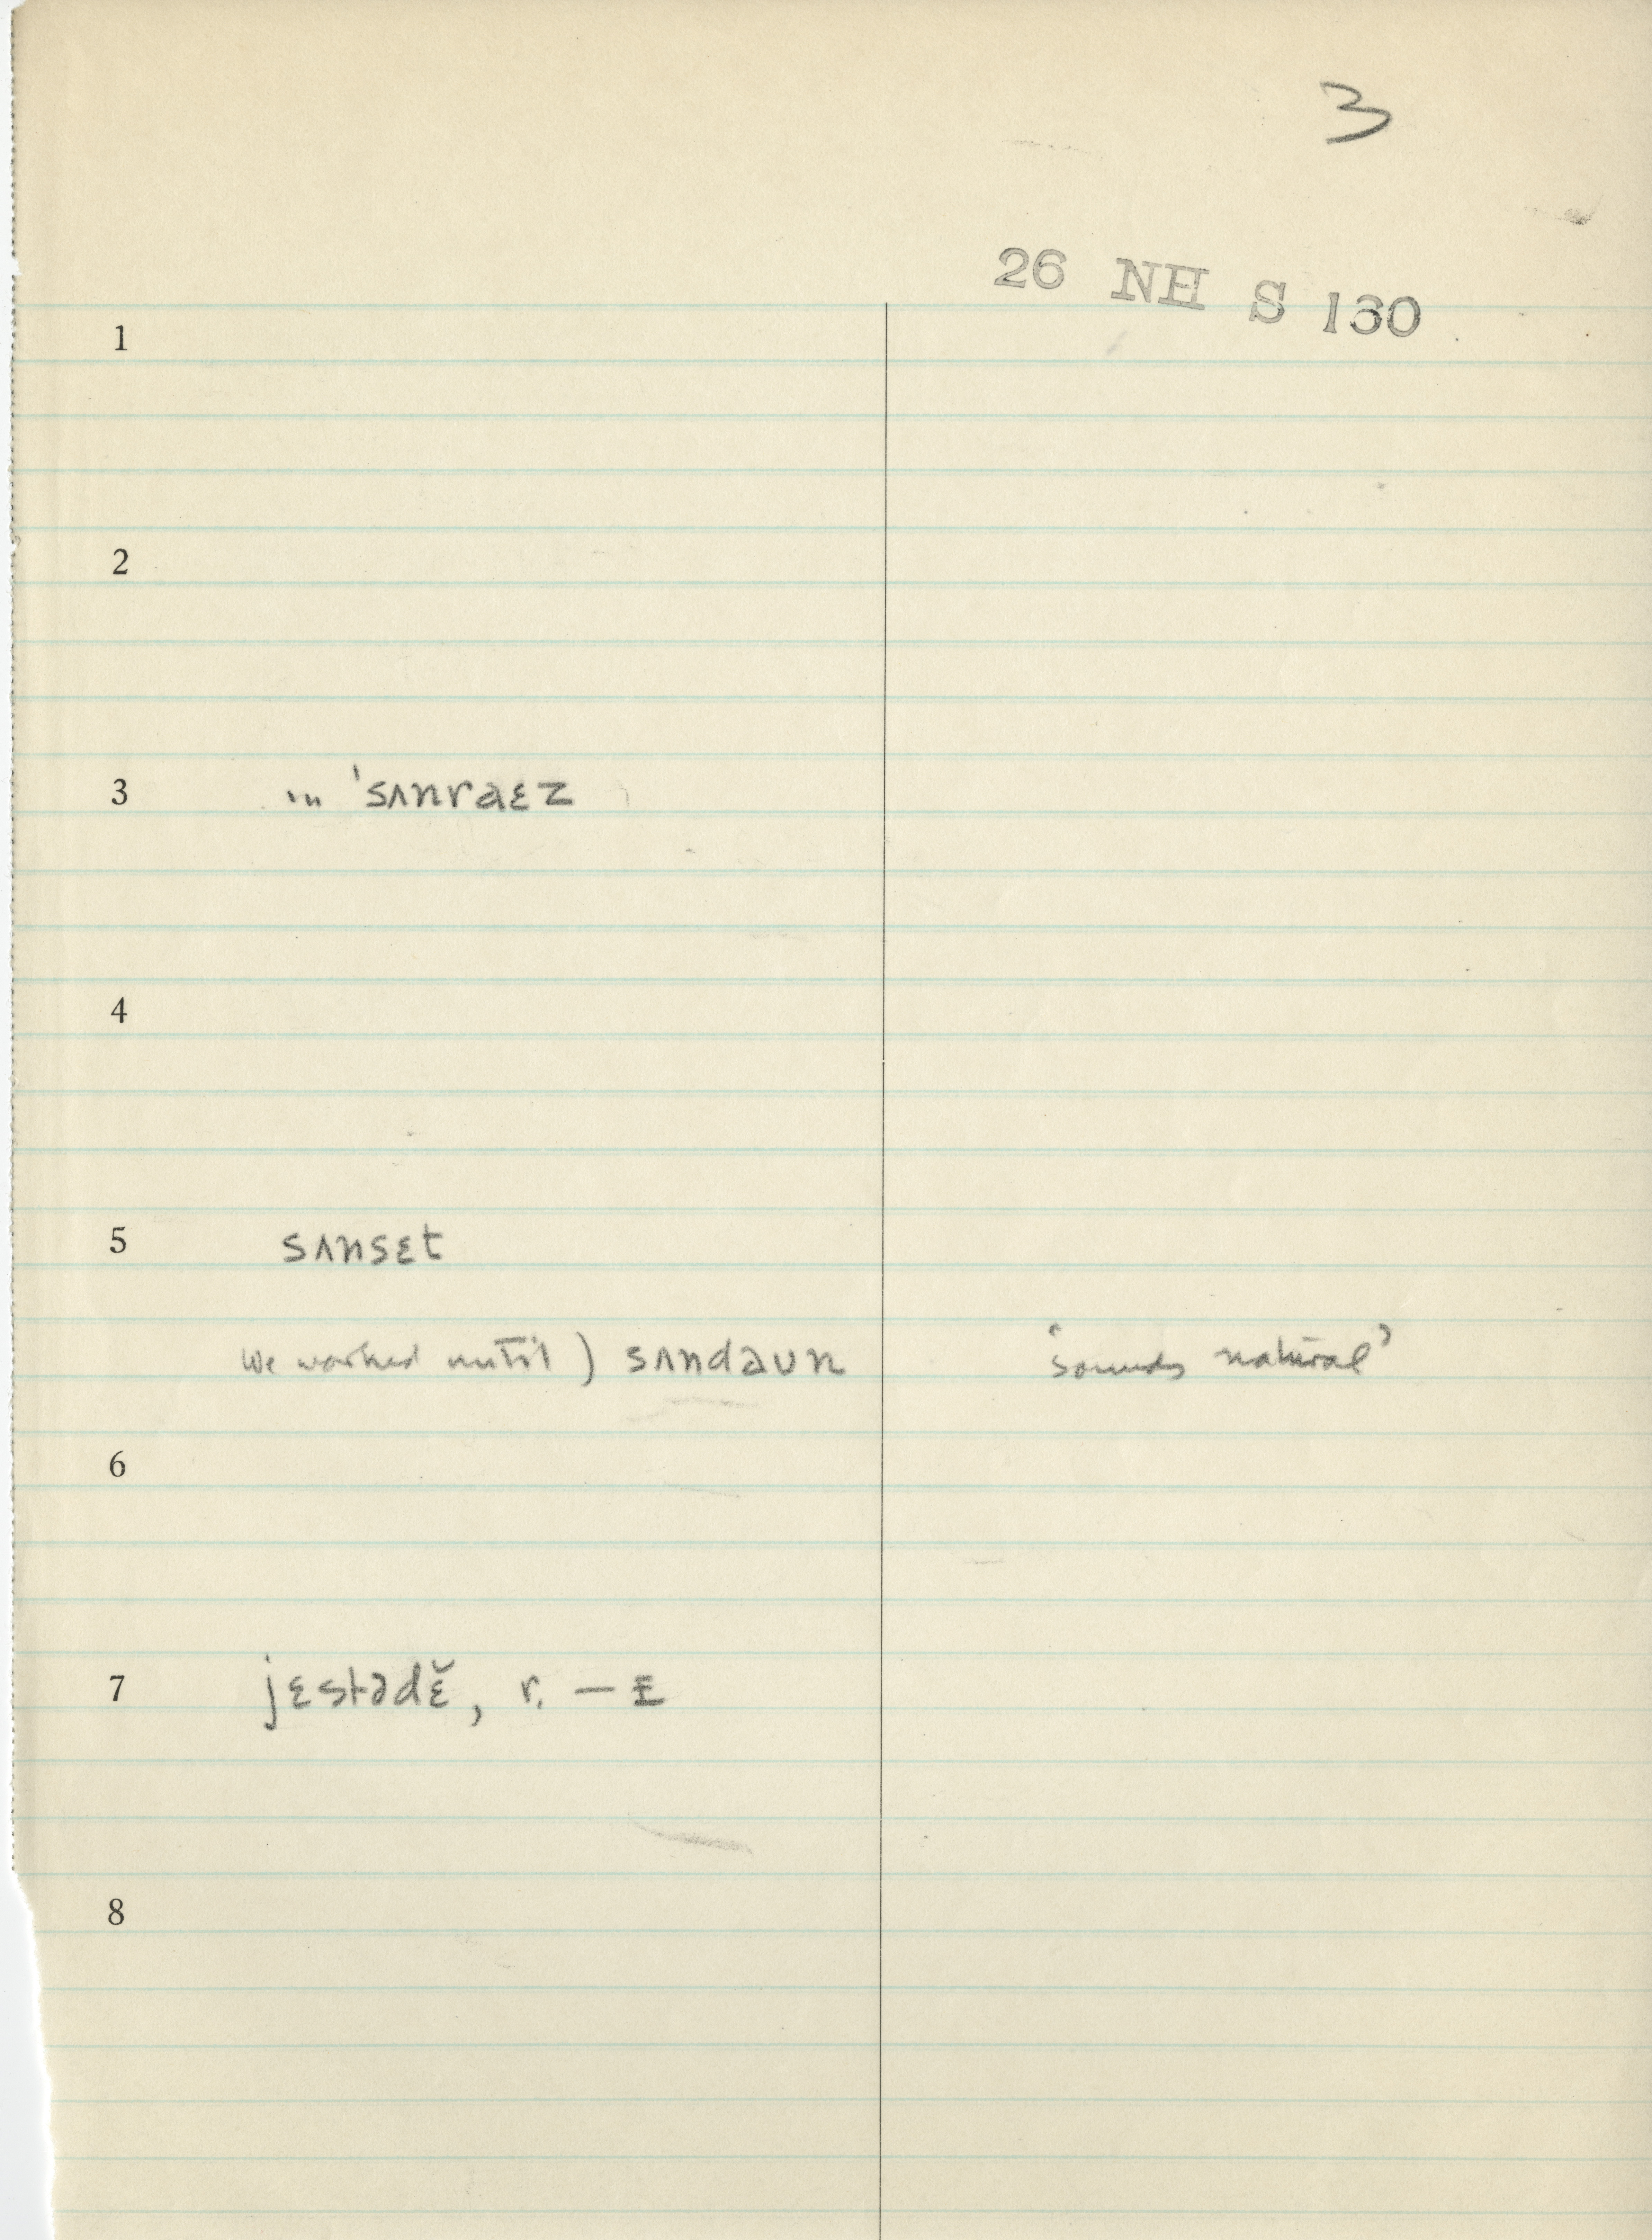 3
26 NH S 130
1
2
3 ın ˈsʌnraɛz
4
5 sʌnsɛt
we worked until) sʌndaʊn ‘sounds natural’
6
7 jɛstədɛ̆, r. — ɛ
8